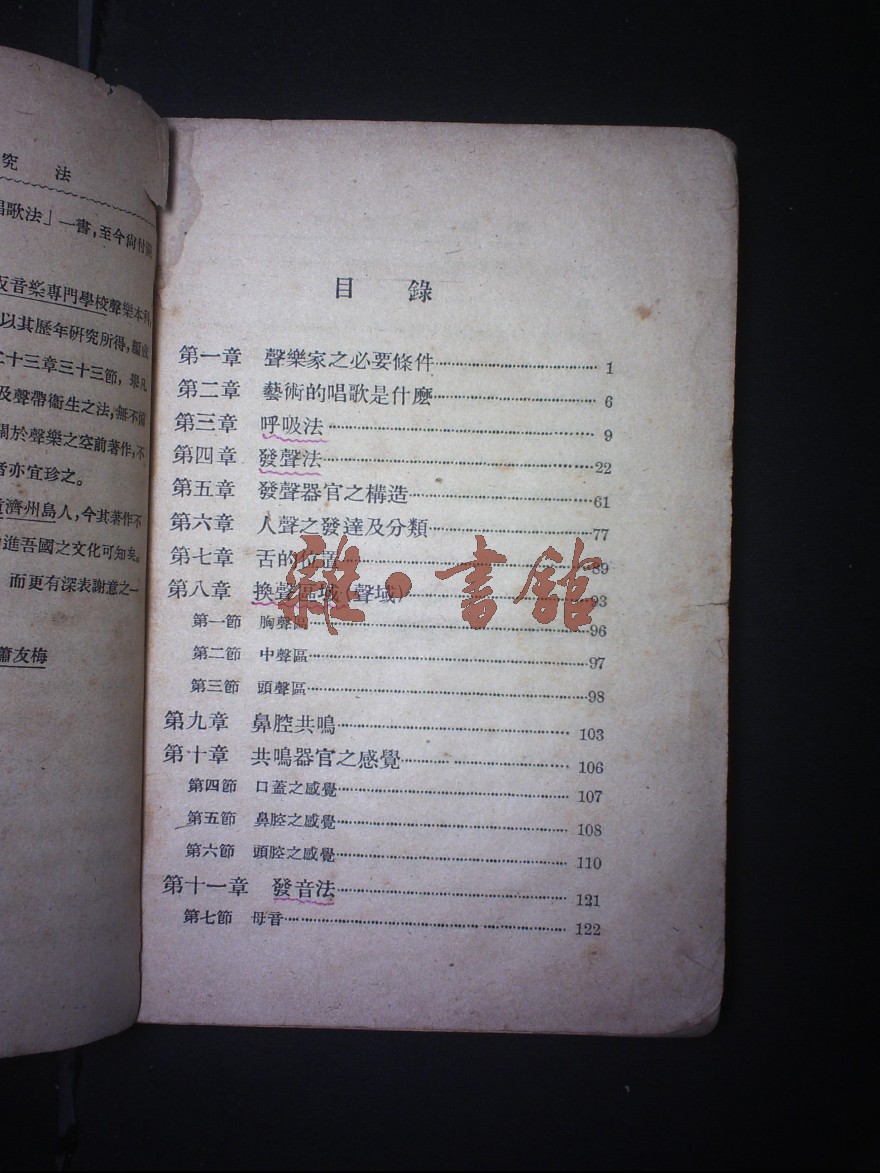 究 法
唱歌法」一書，至今尙付
音樂專門學校聲樂本科，
以其歷年研究所得，編
十三章三十三節，舉凡
及聲帶衞生之法，無不
關於聲樂之空前著作，不
者亦宜珍之。
濟州島人，今其著作不
進吾國之文化可知矣。
而更有深表謝意之一
蕭友梅
目 錄
第一章 聲樂家之必要條件 1
第二章 藝術的唱歌是什麽 6
第三章 呼吸法 9
第四章 發聲法 22
第五章 發聲器官之構造 61
第六章 人聲之發達及分類 77
第七章 舌的位置 89
第八章 換聲區域（聲域） 93
第一節 胸聲區 96
第二節 中聲區 97
第三節 頭聲區 98
第九章 鼻腔共鳴 103
第十章 共鳴器官之感覺 106
第四節 口蓋之感覺 107
第五節 鼻腔之感覺 108
第六節 頭腔之感覺 110
第十一章 發音法 121
第七節 母音 122
雜·書館